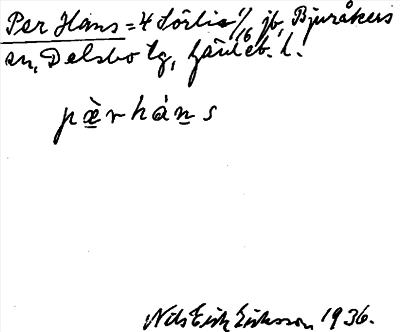 Per Hans = 4 Sörlia 1/16 jb, Bjuråkers
sn, Delsbo tg, Gävleb. l.
pærháns
Nils Erik Eriksson 1936.